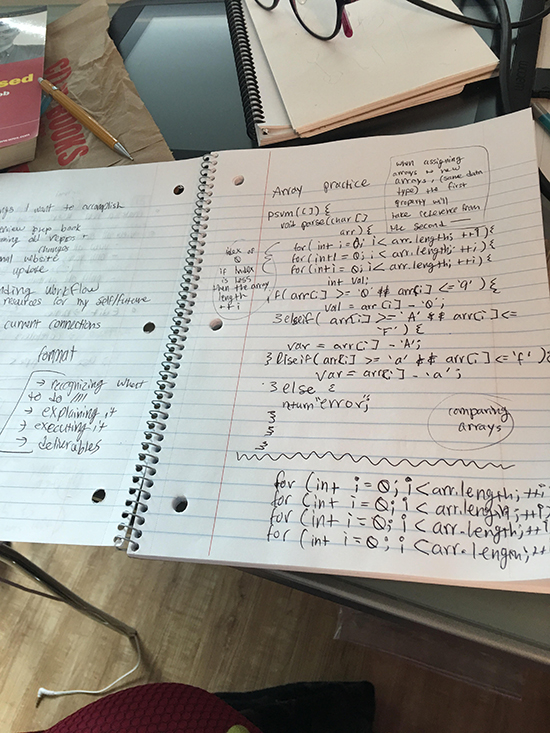 sed
ab
BOOKS
I want to accomplish
review prep book
all repos +
changes
website
update
workflow
resources for my self/future
current connections
format
→ recognizing what
to do
→ explaining it
→ executing it
→ deliverables
Array practice
when assigning
arrays to new
arrays, (same data
type) the first
property will
take reference from
the second
psvm([]) {
void parse(char[]
arr) {
index at
0
if index
is less
than the array
length
++i
for (int i = 0; i < arr.length; ++i) {
for (int i = 0; i < arr.length; ++i) {
for (int i = 0; i < arr.length; ++i) {
int val;
if( arr[i] >= '0' && arr[i] <= '9') {
val = arr[i] - '0';
} elseif( arr[i] >= 'A' && arr[i] <=
'F') {
var = arr[i] - 'A';
} elseif( arr[i] >= 'a' && arr[i] <= 'f') {
var = arr[i] - 'a';
} else {
return "error";
}
}
}
comparing
arrays
for (int i = 0; i < arr.length; ++i
for (int i = 0; i < arr.length; ++i
for (int i = 0; i < arr.length; ++i
for (int i = 0; i < arr.length; ++